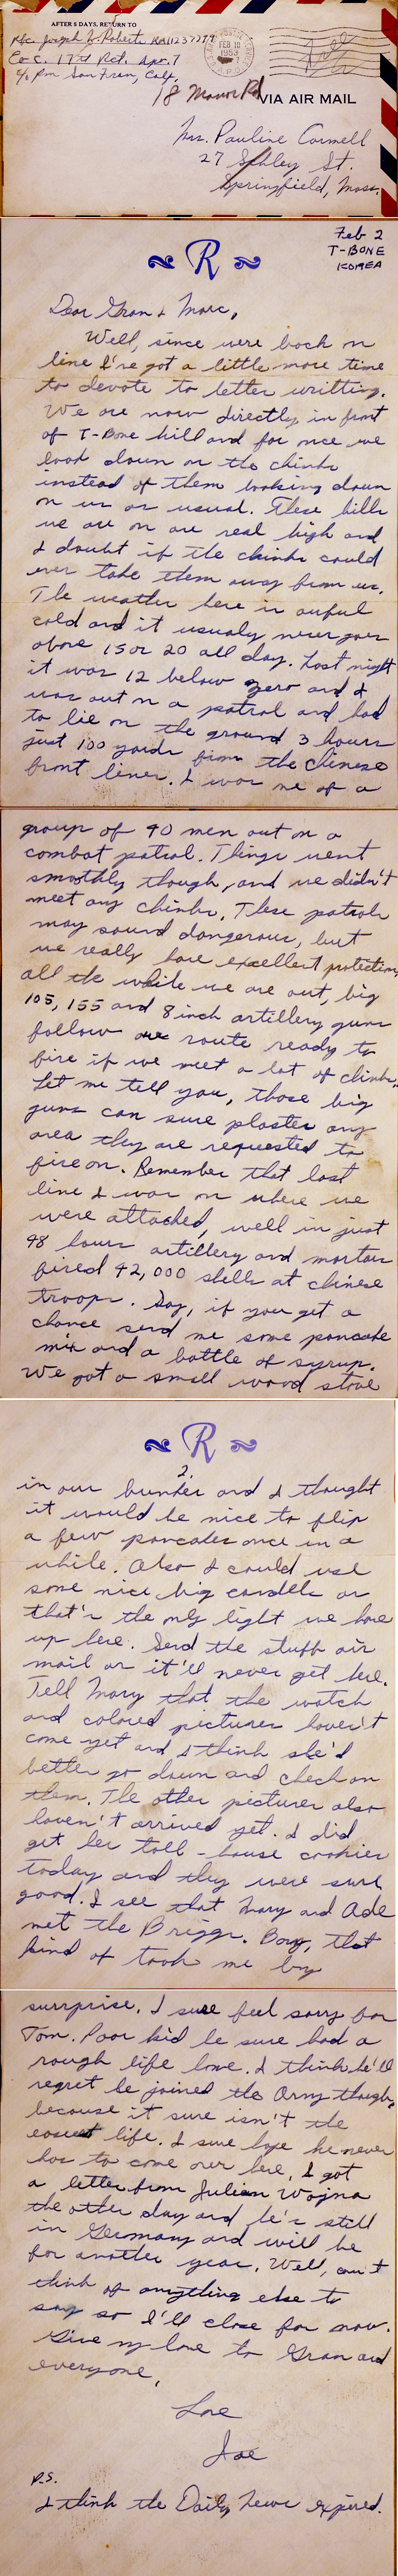 AFTER 5 DAYS, RETURN TO
Pfc. Joseph W. Roberts RA11237277
Co C. 17th Rct. Apo. 7
c/o Pm San Fran, Calf.
FEB 10
1953
18 Manor Rd
VIA AIR MAIL
Mrs. Pauline Cormell
27 Schley St.
Springfield, Mass.
Feb 2
T-BONE
KOREA
R
Dear Gran & Marc,
Well, since were back on
line I've got a little more time
to devote to letter writting.
We are now directly in front
of T-Bone hill and for once we
look down on the chinks
instead of them looking down
on us as usual. These hills
we are on are real high and
I doubt if the chinks could
ever take them away from us.
The weather here is awful
cold and it usualy never goes
above 15 or 20 all day. Last night
it was 12 below zero and I
was out on a patrol and had
to lie on the ground 3 hours
just 100 yards from the Chinese
front lines. I was one of a
group of 40 men out on a
combat patrol. Things went
smoothly though, and we didn't
meet any chinks. These patrols
may sound dangerous, but
we really have excellent protection,
all the while we are out, big
105, 155 and 8 inch artillery guns
follow our route ready to
fire if we meet a lot of chinks.
Let me tell you, those big
guns can sure plaster any
area they are requested to
fire on. Remember that last
line I was on where we
were attached, well in just
48 hours artillery and mortars
fired 42,000 shells at chinese
troops. Say, if you get a
chance send me some pancake
mix and a bottle of syrup.
We got a small wood stove
R
2.
in our bunker and I thought
it would be nice to flip
a few pancakes once in a
while. Also I could use
some nice big candles as
that's the only light we have
up here. Send the stuff air
mail or it'll never get here.
Tell Mary that the watch
and colored pictures haven't
come yet and I think she'd
better go down and check on
them. The other pictures also
haven't arrived yet. I did
get her toll-house cookies
today and they were sure
good. I see that Mary and Ade
met the Briggs. Boy, that
kind of took me by
surrprise. I sure feel sorry for
Tom. Poor kid he sure had a
rough life home. I think he'll
regret he joined the Army though,
because it sure isn't the
easiest life. I sure hope he never
has to come over here. I got
a letter from Julian Wojna
the other day and he's still
in Germany and will be
for another year. Well, can't
think of anything else to
say so I'll close for now.
Give my love to Gran and
everyone,
Love
Joe
P.S.
I think the Daily News expired.